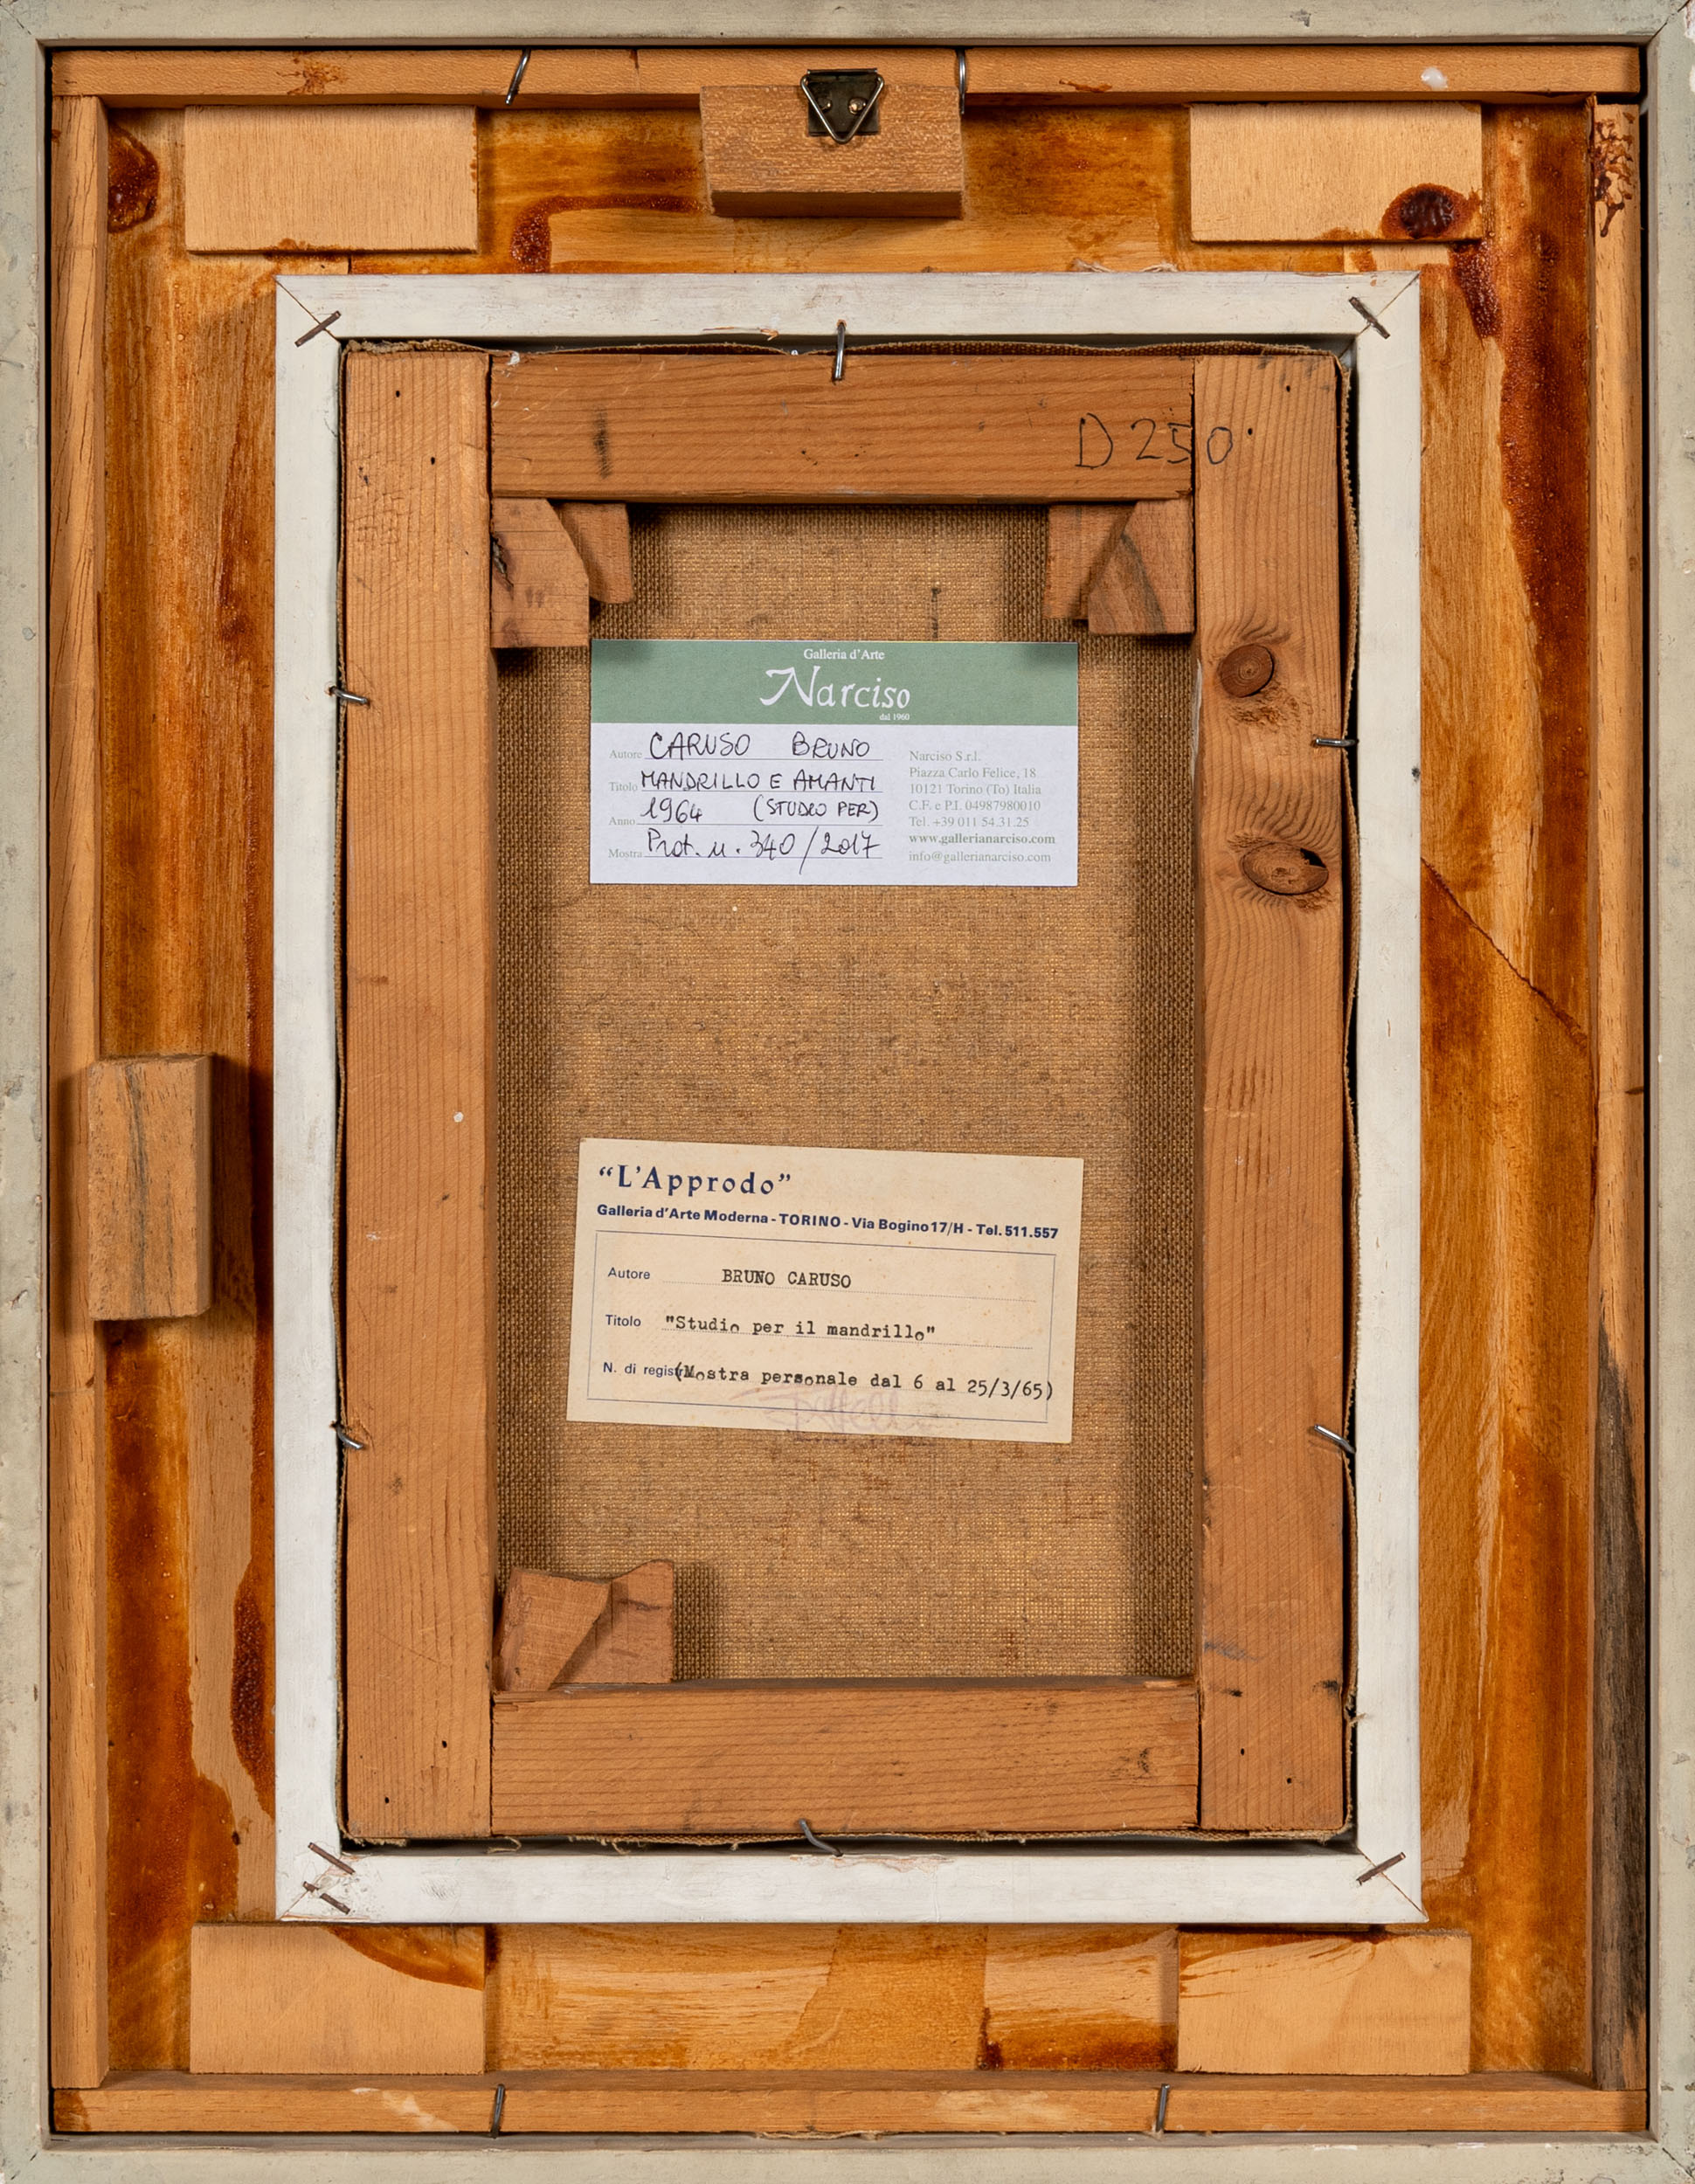 D 250
Galleria d'Arte
Narciso
dal 1960
Autore CARUSO BRUNO
Titolo MANDRILLO E AMANTI
Anno 1964 (STUDIO PER)
Mostra Prot. n. 340/2017
Narciso S.r.l.
Piazza Carlo Felice, 18
10121 Torino (To) Italia
C.F. e P.I. 04987980010
Tel. +39 011 54.31.25
www.gallerianarciso.com
info@gallerianarciso.com
“L'Approdo”
Galleria d'Arte Moderna - TORINO - Via Bogino 17/H - Tel. 511.557
Autore BRUNO CARUSO
Titolo "Studio per il mandrillo"
N. di regist (Mostra personale dal 6 al 25/3/65)